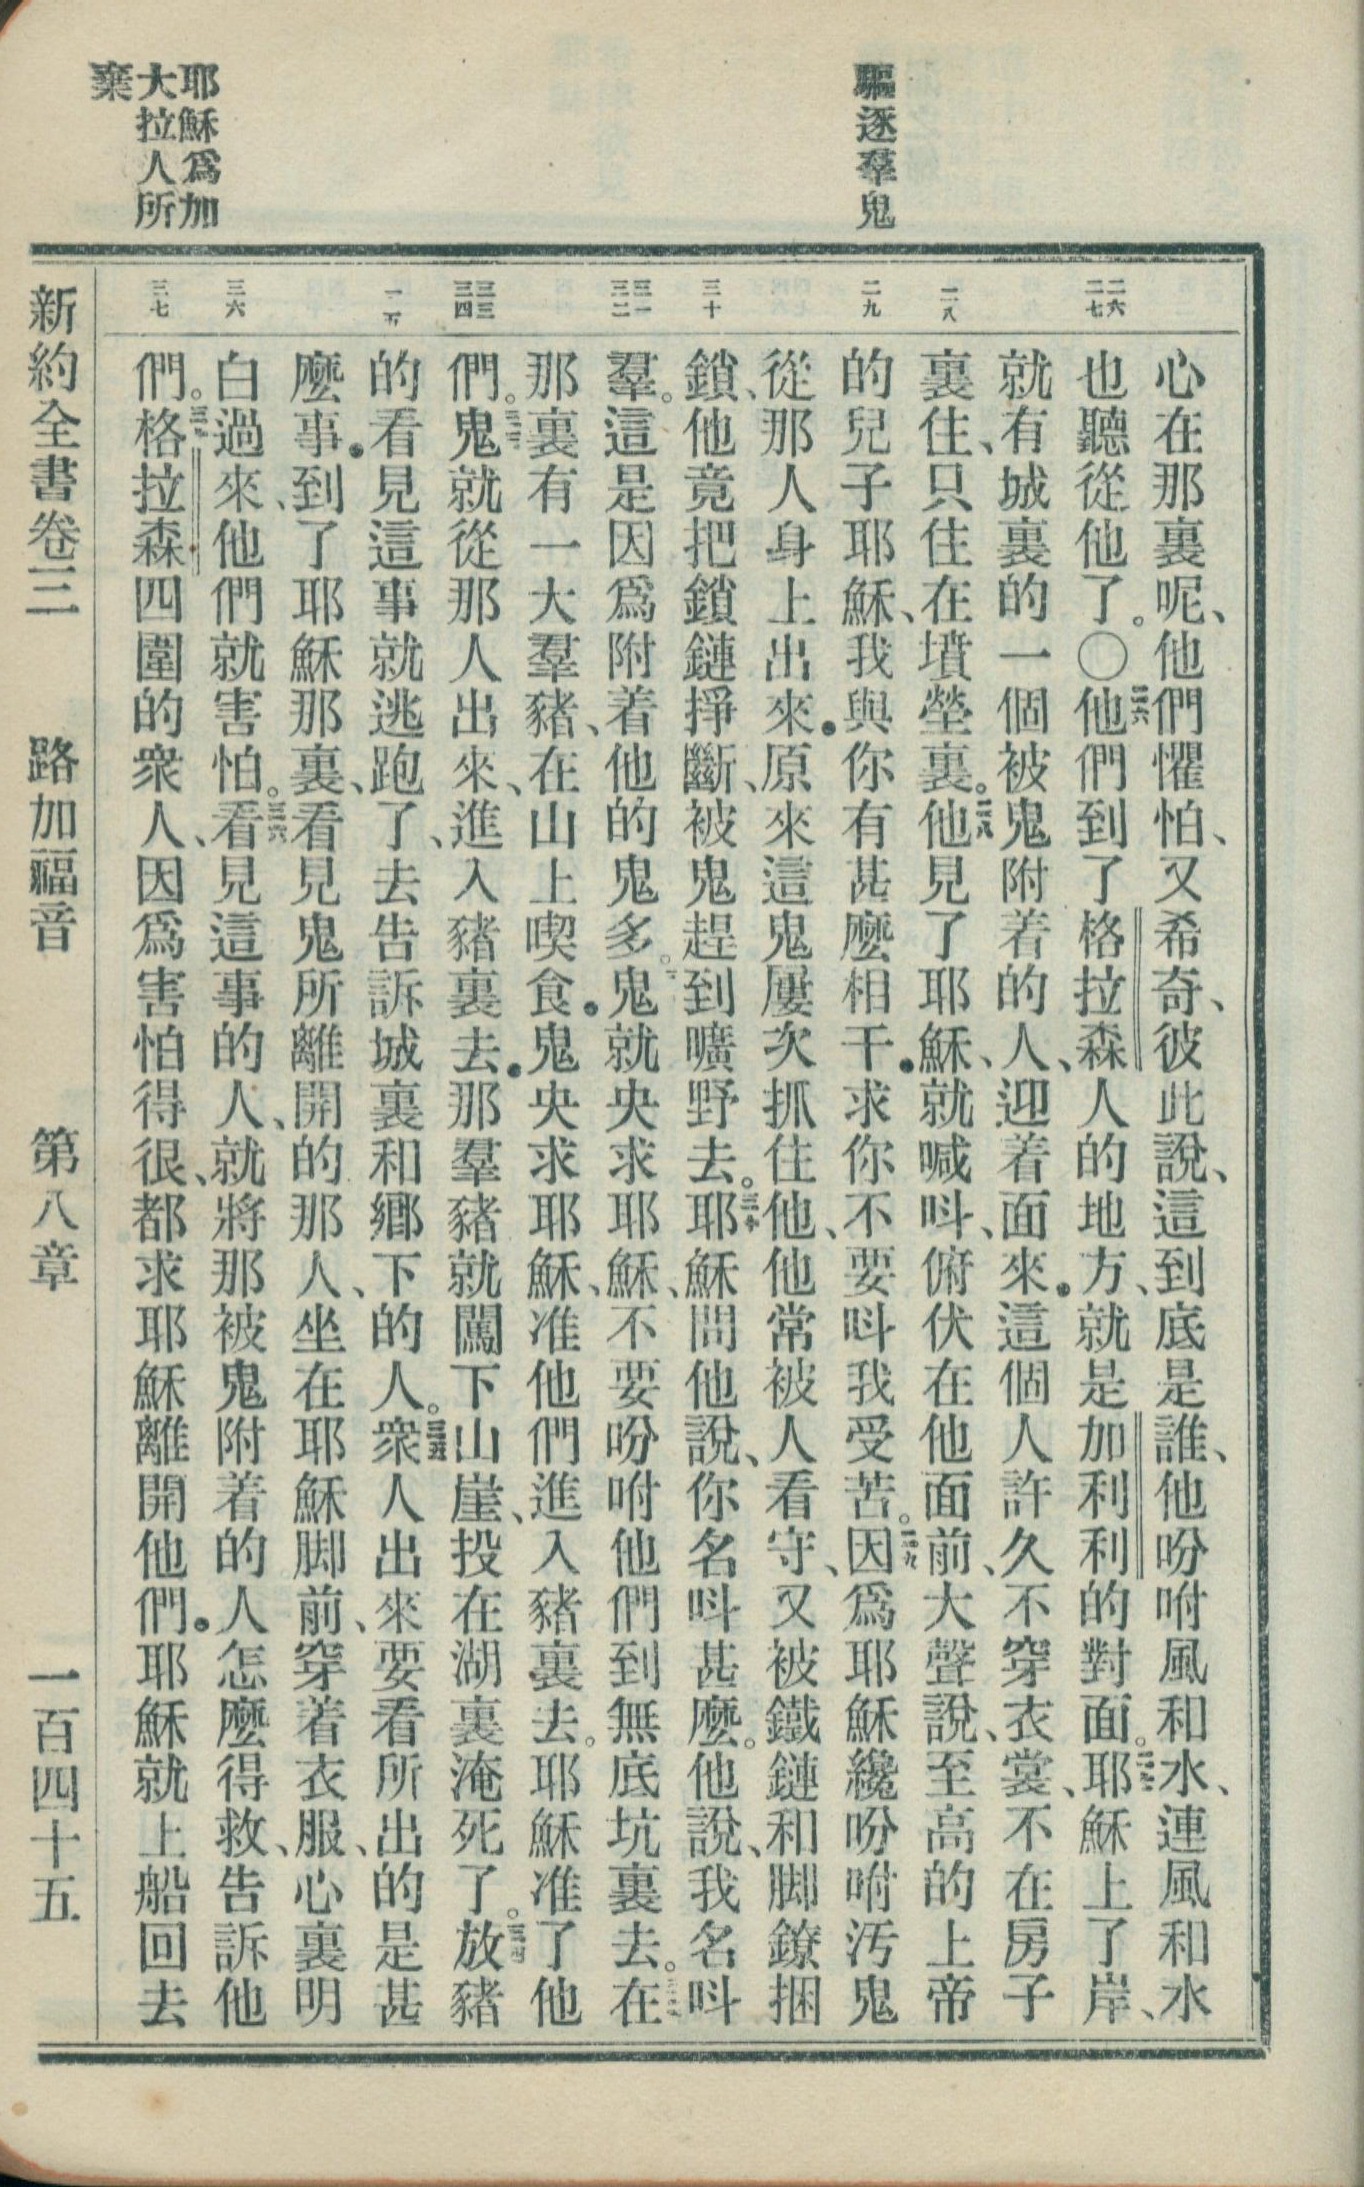 驅逐羣鬼
耶穌爲加
大拉人所
棄
二六
二七
二八
二九
三十
三一
三二
三三
三四
三五
三六
三七
心在那裏呢、他們懼怕、又希奇、彼此說、這到底是誰、他吩咐風和水、連風和水
也聽從他了。〇二六他們到了格拉森人的地方、就是加利利的對面。二七耶穌上了岸、
就有城裏的一個被鬼附着的人、迎着面來．這個人許久不穿衣裳、不在房子
裏住、只住在墳塋裏。二八他見了耶穌、就喊呌、俯伏在他面前、大聲說、至高的上帝
的兒子耶穌、我與你有甚麼相干．求你不要呌我受苦。二九因爲耶穌纔吩咐汚鬼
從那人身上出來．原來這鬼屢次抓住他、他常被人看守、又被鐵鏈和脚鐐捆
鎖、他竟把鎖鏈掙斷、被鬼趕到曠野去。三十耶穌問他說、你名呌甚麼。他說、我名呌
羣。這是因爲附着他的鬼多。三一鬼就央求耶穌、不要吩咐他們到無底坑裏去。三二在
那裏有一大羣豬、在山上喫食．鬼央求耶穌、准他們進入豬裏去。耶穌准了他
們。三三鬼就從那人出來、進入豬裏去．那羣豬就闖下山崖、投在湖裏淹死了。三四放豬
的看見這事就逃跑了、去告訴城裏和鄉下的人。三五衆人出來要看所出的是甚
麼事．到了耶穌那裏、看見鬼所離開的那人、坐在耶穌脚前、穿着衣服、心裏明
白過來、他們就害怕。三六看見這事的人、就將那被鬼附着的人怎麼得救、告訴他
們。三七格拉森四圍的衆人、因爲害怕得很、都求耶穌離開他們．耶穌就上船回去
新約全書卷三　路加福音　第八章　一百四十五